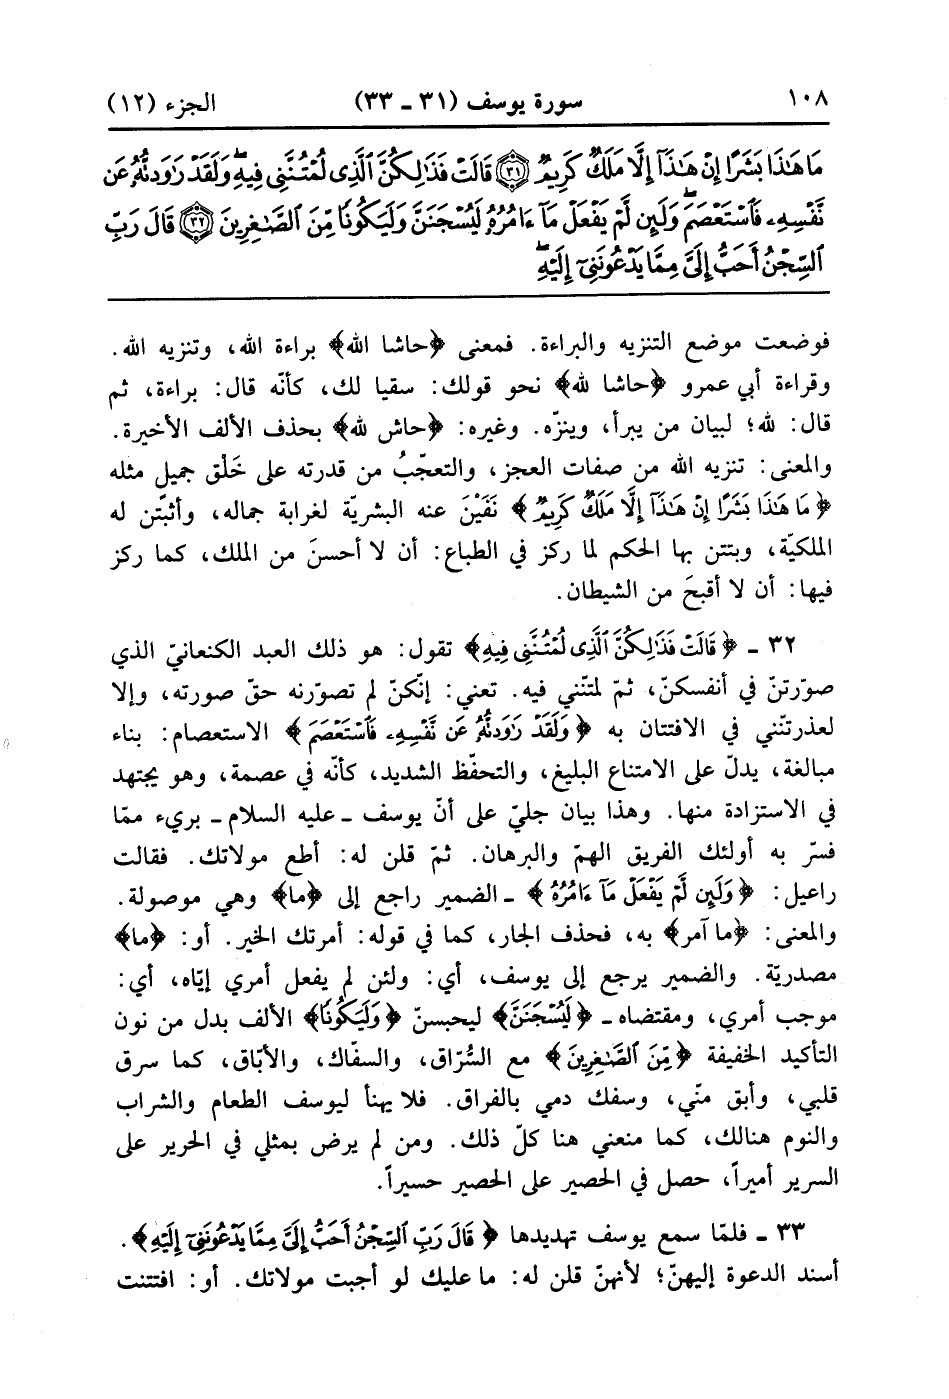 ١٠٨ سورة يوسف (٣١ ـ ٣٣) الجزء (١٢)
مَا هَٰذَا بَشَرًا إِنْ هَٰذَآ إِلَّا مَلَكٌ كَرِيمٌ ﴿٣١﴾ قَالَتْ فَذَٰلِكُنَّ ٱلَّذِى لُمْتُنَّنِى فِيهِ ۖ وَلَقَدْ رَٰوَدتُّهُۥ عَن
نَّفْسِهِۦ فَٱسْتَعْصَمَ ۖ وَلَئِن لَّمْ يَفْعَلْ مَآ ءَامُرُهُۥ لَيُسْجَنَنَّ وَلَيَكُونًا مِّنَ ٱلصَّٰغِرِينَ ﴿٣٢﴾ قَالَ رَبِّ
ٱلسِّجْنُ أَحَبُّ إِلَىَّ مِمَّا يَدْعُونَنِىٓ إِلَيْهِ ۖ
فوضعت موضع التنزيه والبراءة. فمعنى ﴿حاشا الله﴾ براءة الله، وتنزيه الله.
وقراءة أبي عمرو ﴿حاشا لله﴾ نحو قولك: سقيا لك، كأنّه قال: براءة، ثم
قال: لله؛ لبيان من يبرأ، وينزّه. وغيره: ﴿حاش لله﴾ بحذف الألف الأخيرة.
والمعنى: تنزيه الله من صفات العجز، والتعجّبُ من قدرته على خَلْق جميل مثله
﴿مَا هَٰذَا بَشَرًا إِنْ هَٰذَآ إِلَّا مَلَكٌ كَرِيمٌ﴾ نَفَيْنَ عنه البشريّة لغرابة جماله، وأثبَتن له
الملكيّة، وبتتن بها الحكم لما ركز في الطباع: أن لا أحسنَ من الملك، كما ركز
فيها: أن لا أقبحَ من الشيطان.
٣٢ ـ ﴿قَالَتْ فَذَٰلِكُنَّ ٱلَّذِى لُمْتُنَّنِى فِيهِ﴾ تقول: هو ذلك العبد الكنعانيّ الذي
صوّرتنّ في أنفسكنّ، ثمّ لمتنّني فيه. تعني: إنّكنّ لم تصوّرنه حقّ صورته، وإلا
لعذرتنّني في الافتتان به ﴿وَلَقَدْ رَٰوَدتُّهُۥ عَن نَّفْسِهِۦ فَٱسْتَعْصَمَ﴾ الاستعصام: بناء
مبالغة، يدلّ على الامتناع البليغ، والتحفّظ الشديد، كأنّه في عصمة، وهو يجتهد
في الاستزادة منها. وهذا بيان جليّ على أنّ يوسف ـ عليه السلام ـ بريء ممّا
فسّر به أولئك الفريق الهمّ والبرهان. ثمّ قلن له: أطع مولاتك. فقالت
راعيل: ﴿وَلَئِن لَّمْ يَفْعَلْ مَآ ءَامُرُهُۥ﴾ ـ الضمير راجع إلى ﴿ما﴾ وهي موصولة.
والمعنى: ﴿ما آمر﴾ به، فحذف الجار، كما في قوله: أمرتك الخير. أو: ﴿ما﴾
مصدريّة. والضمير يرجع إلى يوسف، أي: ولئن لم يفعل أمري إيّاه، أي:
موجب أمري، ومقتضاه ـ ﴿لَيُسْجَنَنَّ﴾ ليحبسنّ ﴿وَلَيَكُونًا﴾ الألف بدل من نون
التأكيد الخفيفة ﴿مِّنَ ٱلصَّٰغِرِينَ﴾ مع السُّرّاق، والسفّاك، والأبّاق، كما سرق
قلبي، وأبق منّي، وسفك دمي بالفراق. فلا يهنأ ليوسف الطعام والشراب
والنوم هنالك، كما منعني هنا كلّ ذلك. ومن لم يرض بمثلي في الحرير على
السرير أميراً، حصل في الحصير على الحصير حسيراً.
٣٣ ـ فلمّا سمع يوسف تهديدها ﴿قَالَ رَبِّ ٱلسِّجْنُ أَحَبُّ إِلَىَّ مِمَّا يَدْعُونَنِىٓ إِلَيْهِ﴾.
أسند الدعوة إليهنّ؛ لأنهنّ قلن له: ما عليك لو أجبت مولاتك. أو: افتتنت